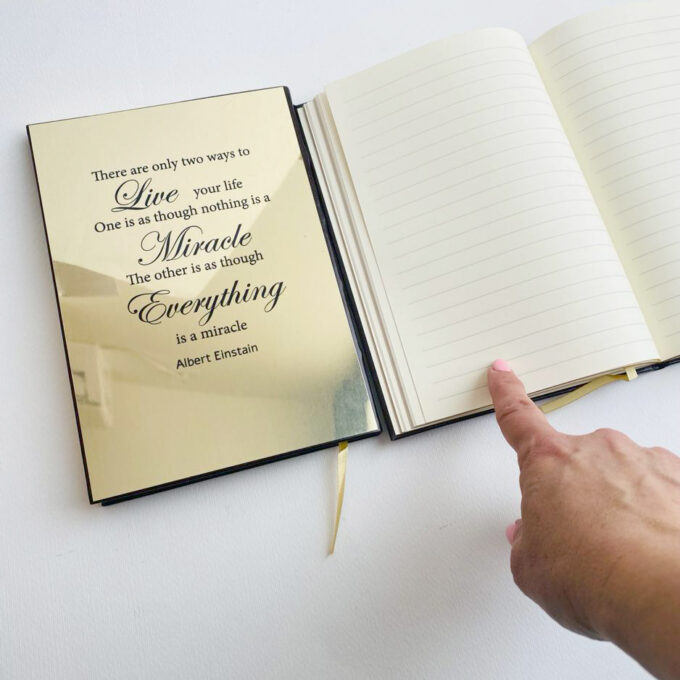 There are only two ways to
Live your life
One is as though nothing is a
Miracle
The other is as though
Everything
is a miracle
Albert Einstain